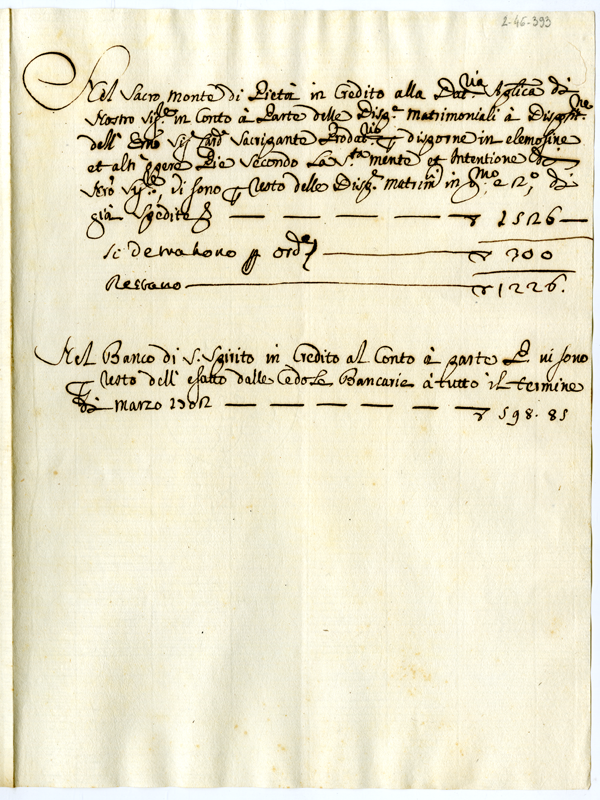 2-46-393
Nel Sacro Monte di Pietà in Credito alla Dat.ria Ap.lica di
Nostro Sig.re in Conto à Parte delle Disp.e matrimoniali à Disposit.ne
dell' Em̃o Sig.r Card. Sacripante Prodat.rio p disporne in elemosine
et altr' opere Pie secondo la S.ta mente et Intentione di
N̄ro Sig.re, Vi sono p resto delle Disp.e matrim.li in p.mo e 2.o di
già spedite
— — — — — ▽ 1526 —
Si detrahono p ord.e — ▽ 300
Restano — ▽ 1226.
Nel Banco di S. Spirito in Credito al Conto à parte vi sono
p resto dell' esatto dalle Cedole Bancarie à tutto il termine
di Marzo 1702 — — — — — ▽ 598. 85